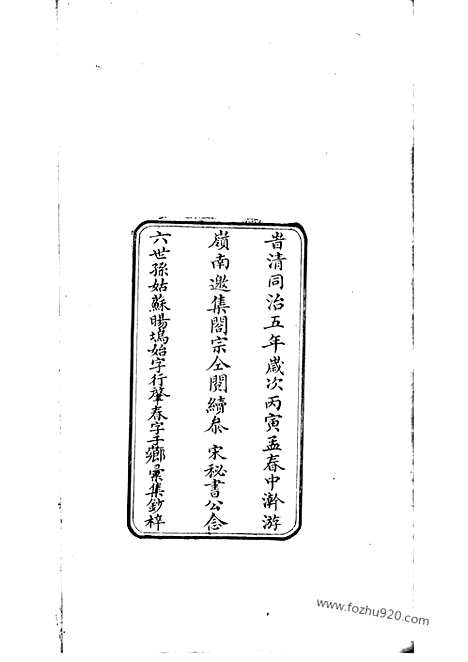 旹清同治五年歲次丙寅孟春中澣游
嶺南邀集閤宗仝閱續叅 宋秘書公念
六世孫姑蘇暘塢始字行肇春字手薌彙集鈔梓
www.fozhu920.com